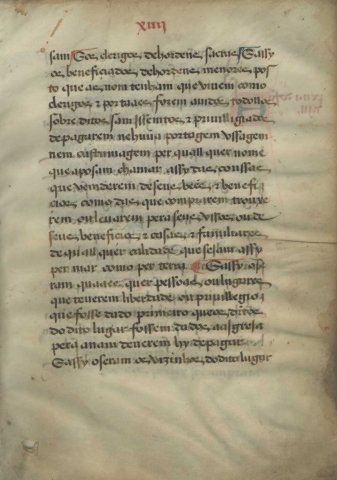 xiiij
sam Goe clerigos dehordens sacras Assy
os beneficiados dehordens menores pos
to que as nom tenham que viuem como
clerigos & por taaes forem auidos todollos
sobre ditos sam Isemtos & priuilligiados
de pagarem nehuũa portagem vssagem
nem custumagem per quall quer nome
que aposam chamar assy das coussas
que vemderem de seus beẽs & benefi
cios como das que comprarem trouxe
rem ou leuarem pera seus vssos ou de
seus beneficios & casas & familiares
de quall quer calidade que sejam assy
per mar como per terra ¶ E Assy o se
ram quaaes quer pessoas ou lugares
que teuerem liberdade ou priuillegio
que fosse dado primeiro que os dirtos
do dito lugar fossem dados aa Igreja
pera a nam deuerem hy de pagar
E assy o seram os vizinhos do dito lugar